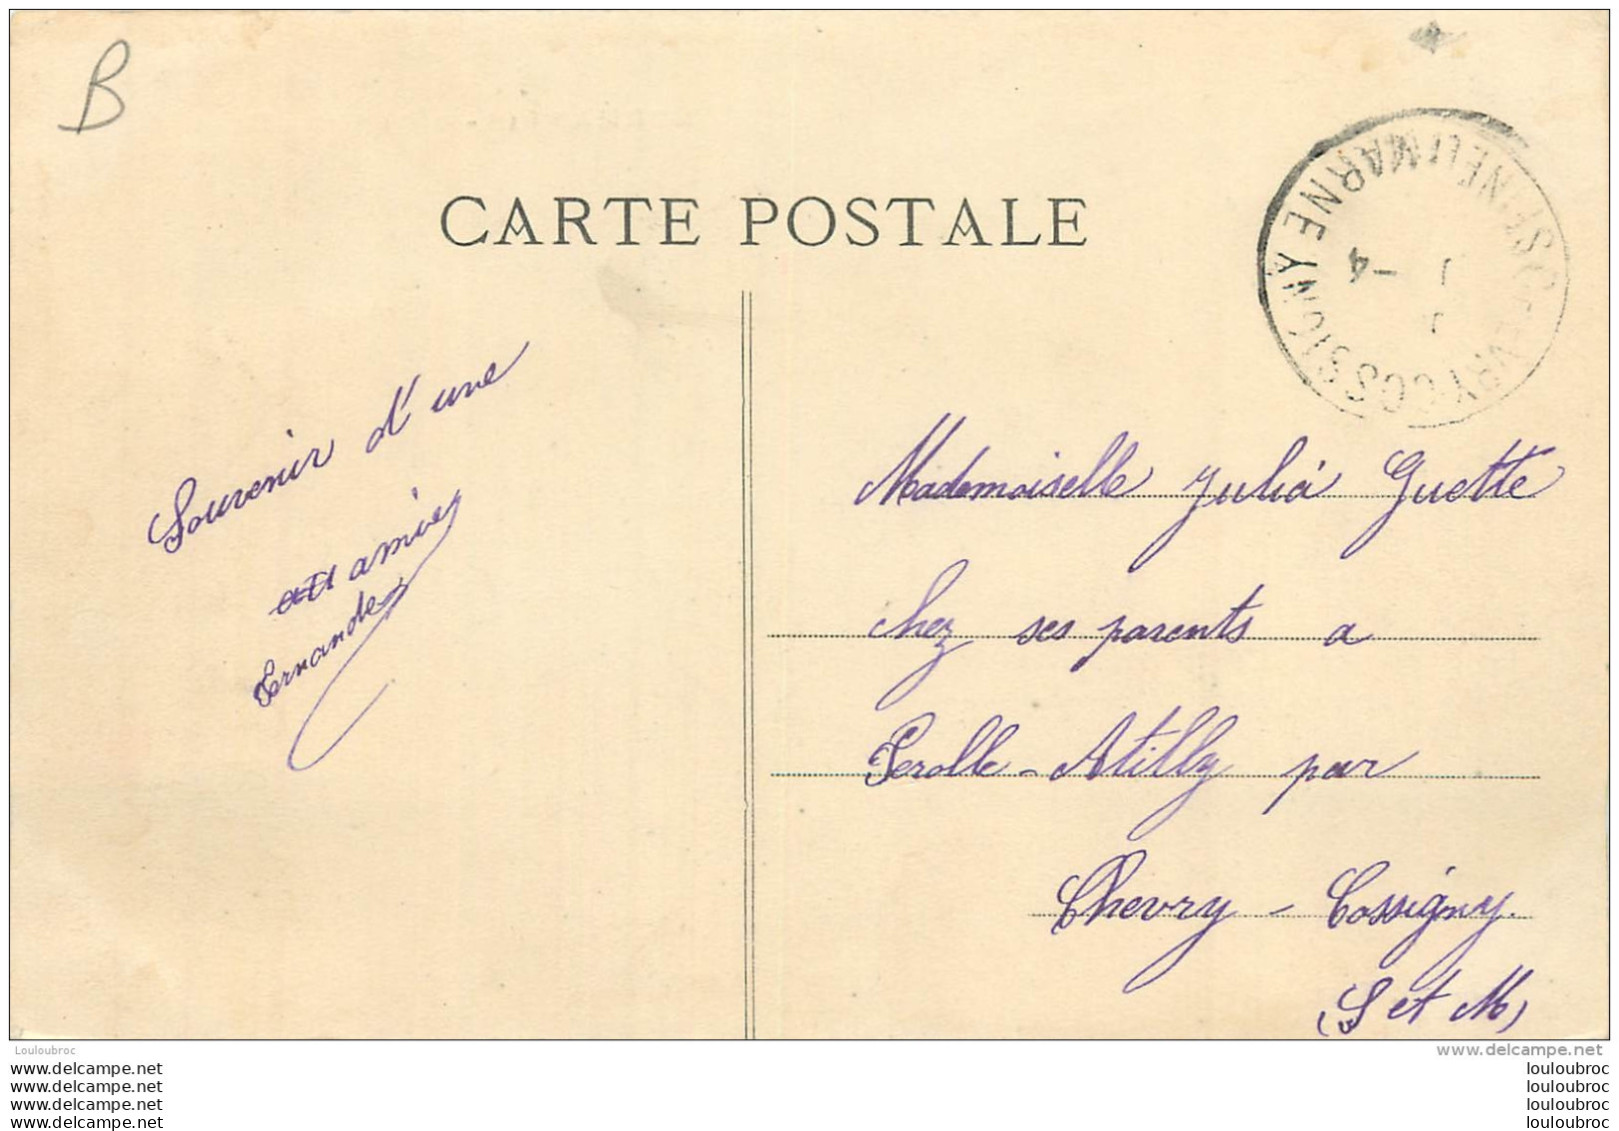 B
CARTE POSTALE
CHEVRY COSSIGNY
SEINE ET MARNE
1 - 4
Souvenir d'une
amie
Fernande
Mademoiselle Julia Guette
chez ses parents a
Perolle - Attilly par
Chevry - Cossigny.
(S et M)
Louloubroc
www.delcampe.net
www.delcampe.net
www.delcampe.net
www.delcampe.net
www.delcampe.net
louloubroc
louloubroc
louloubroc
louloubroc